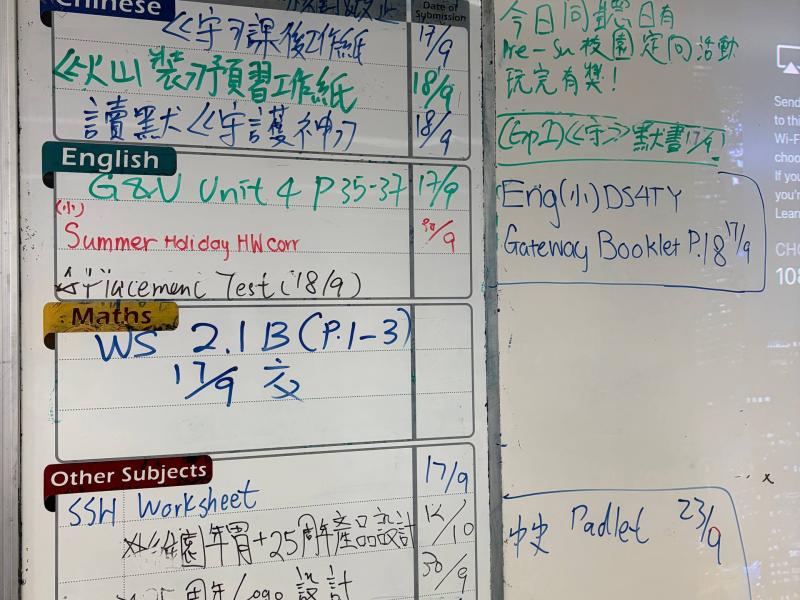 Chinese
Date of Submission
《守》課後工作紙 17/9
《火山》預習工作紙 18/9
讀默《守護神》 18/9
English
G&U Unit 4 P 35-37 17/9
(小)
Summer Holiday HW corr 30/9
Placement Test (18/9)
Maths
WS 2.1 B (P.1-3)
17/9 交
Other Subjects
SSH Worksheet 17/9
年宵+25周年產品設計 14/10
周年 logo 設計 30/9
今日同聽日有
Pre-Su 校園定向活動
玩完有獎!
(Gp2)《守》默書17/9
Eng(小) DS4TY
Gateway Booklet P.18 17/9
中史 Padlet 23/9
Send
to thi
Wi-F
choo
If you
you'r
Learn
CHO
108